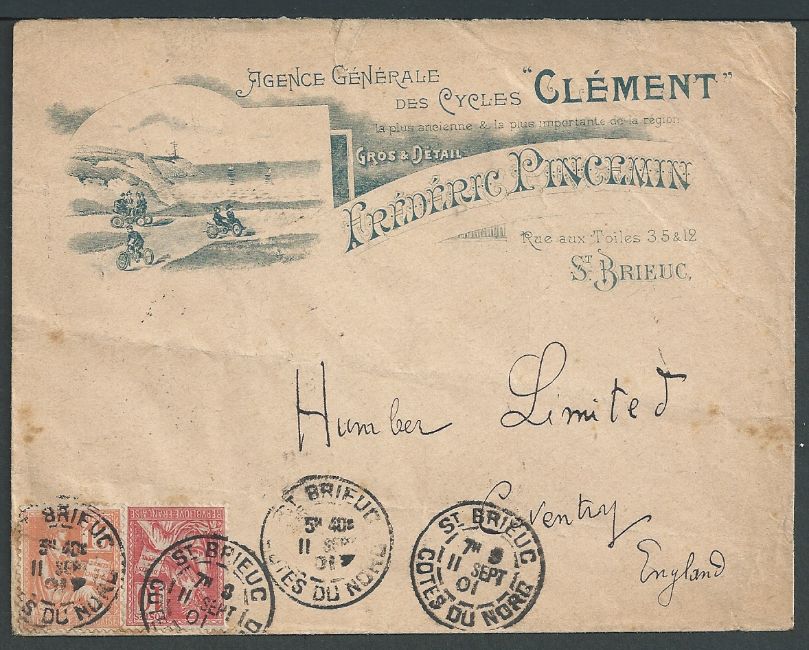 AGENCE GÉNÉRALE
DES CYCLES "CLÉMENT"
la plus ancienne & la plus importante de la région
GROS & DÉTAIL
FRÉDÉRIC PINCEMIN
Rue aux Toiles 3.5 & 12
ST BRIEUC,
Humber Limited
Coventry
England
ST BRIEUC
5H 40E
11 SEPT
01
COTES DU NORD
ST BRIEUC
7H
11 SEPT
01
COTES DU NORD
BRIEUC
5H 40E
11 SEP
01
S DU NORD
REPUBLIQUE FRANÇAISE
ST BRIEUC
7H
11 SEPT
01